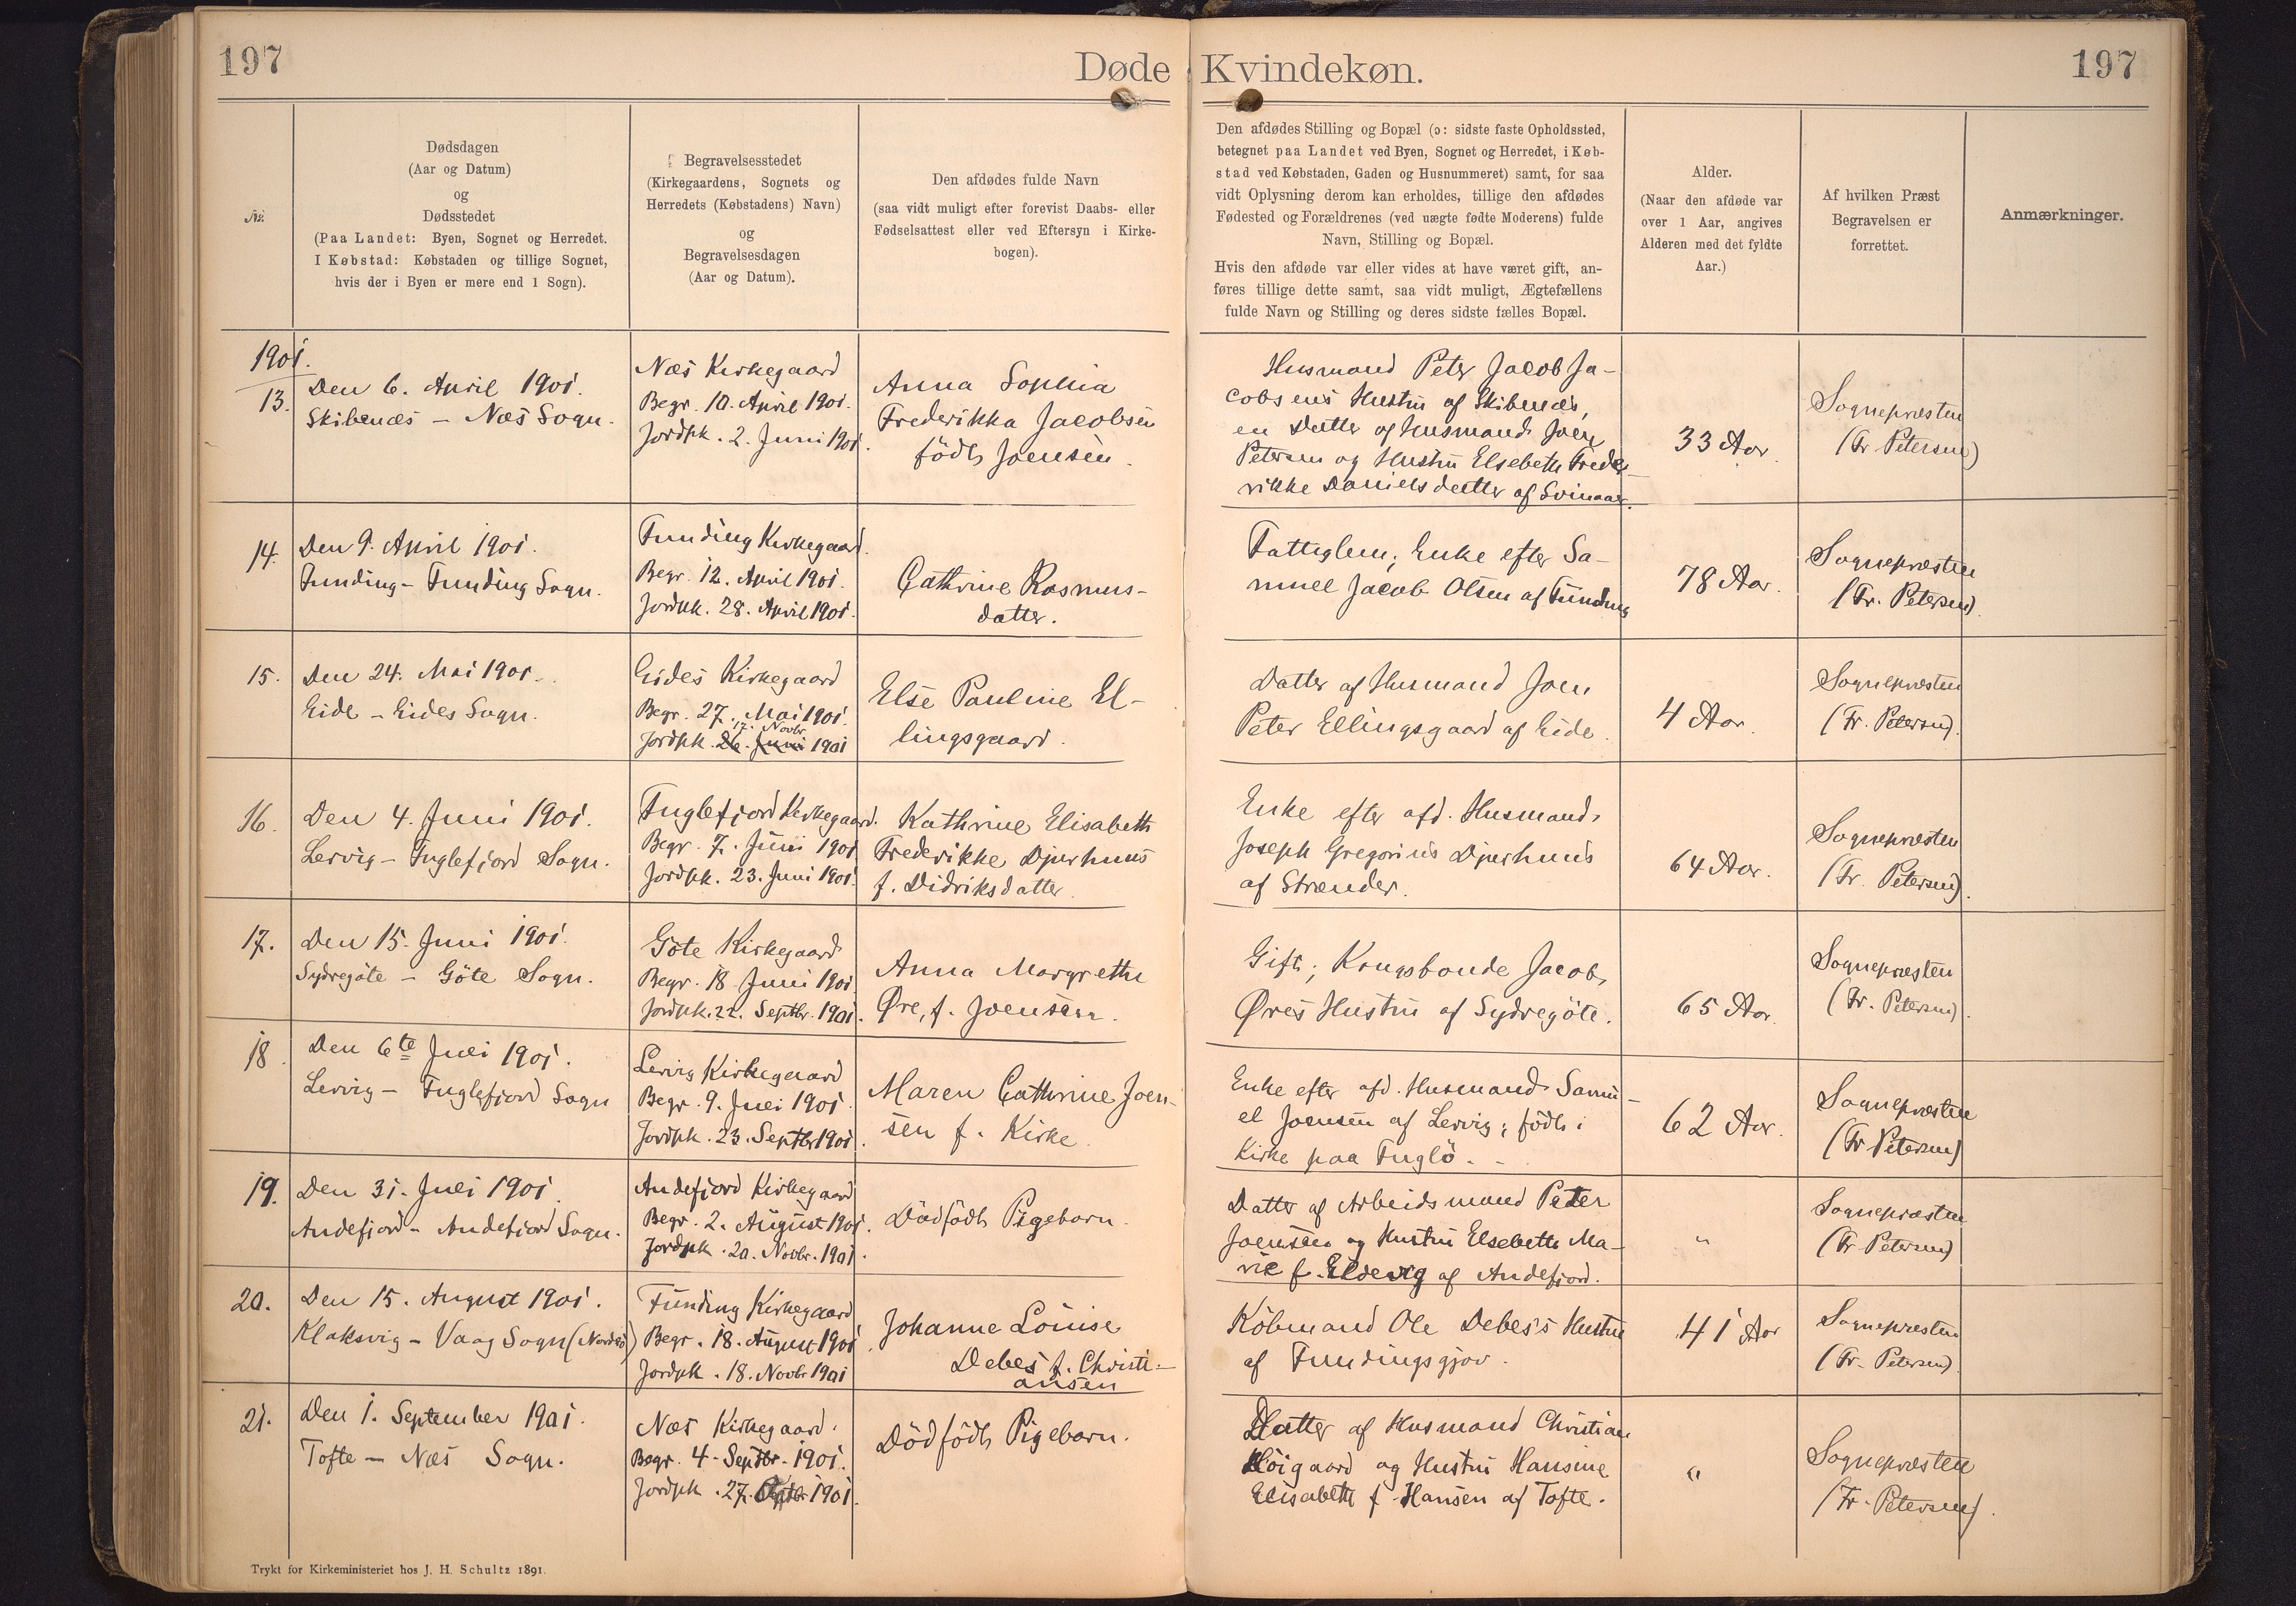 197
Døde
Kvindekøn.
197
№
Dødsdagen
(Aar og Datum)
og
Dødsstedet
(Paa Landet: Byen, Sognet og Herredet.
I Købstad: Købstaden og tillige Sognet,
hvis der i Byen er mere end 1 Sogn).
Begravelsesstedet
(Kirkegaardens, Sognets og
Herredets (Købstadens) Navn)
og
Begravelsesdagen
(Aar og Datum).
Den afdødes fulde Navn
(saa vidt muligt efter forevist Daabs- eller
Fødselsattest eller ved Eftersyn i Kirke-
bogen).
Den afdødes Stilling og Bopæl (ɔ: sidste faste Opholdssted,
betegnet paa Landet ved Byen, Sognet og Herredet, i Køb-
stad ved Købstaden, Gaden og Husnummeret) samt, for saa
vidt Oplysning derom kan erholdes, tillige den afdødes
Fødested og Forældrenes (ved uægte fødte Moderens) fulde
Navn, Stilling og Bopæl.
Hvis den afdøde var eller vides at have været gift, an-
føres tillige dette samt, saa vidt muligt, Ægtefællens
fulde Navn og Stilling og deres sidste fælles Bopæl.
Alder.
(Naar den afdøde var
over 1 Aar, angives
Alderen med det fyldte
Aar.)
Af hvilken Præst
Begravelsen er
forrettet.
Anmærkninger.
1901.
13.
Den 6. April 1901.
Skibenæs – Næs Sogn.
Næs Kirkegaard
Begr. 10. April 1901.
Jordpk. 2. Juni 1901.
Anna Sophia
Frederikka Jacobsen
födt Joensen.
Husmand Peter Jacob Ja-
cobsens Hustru af Skibenæs,
en Datter af Husmand Joen
Petersen og Hustru Elsebeth Frede-
rikke Danielsdatter af Svinaar.
33 Aar.
Sognepræsten
(Fr. Petersen)
14.
Den 9. April 1901.
Funding – Funding Sogn.
Funding Kirkegaard.
Begr. 12. April 1901.
Jordpk. 28. April 1901.
Cathrine Rasmus-
datter.
Fattiglem; Enke efter Sa-
muel Jacob Olsen af Funding
78 Aar.
Sognepræsten
(Fr. Petersen)
15.
Den 24. Mai 1901.
Eide – Eides Sogn.
Eides Kirkegaard
Begr. 27. Mai 1901.
17. Novbr.
Jordpk. 26. Juni 1901
Else Pauline El-
lingsgaard.
Datter af Husmand Joen
Peter Ellingsgaard af Eide.
4 Aar.
Sognepræsten
(Fr. Petersen).
16.
Den 4. Juni 1901.
Lervig – Fuglefjord Sogn.
Fuglefjord Kirkegaard.
Begr. 7. Juni 1901
Jordpk. 23. Juni 1901.
Kathrine Elisabeth
Frederikke Djurhuus
f. Didriksdatter.
Enke efter afd. Husmand
Joseph Gregorius Djurhuus
af Strænder.
64 Aar.
Sognepræsten
(Fr. Petersen).
17.
Den 15. Juni 1901.
Sydregöte – Göte Sogn.
Göte Kirkegaard
Begr. 18 Juni 1901
Jordpk. 22. Septbr. 1901.
Anna Margrethe
Øre, f. Joensen.
Gift; Kongsbonde Jacob
Øres Hustru af Sydregöte.
65 Aar.
Sognepræsten
(Fr. Petersen).
18
Den 6te Juli 1901.
Lervig – Fuglefjord Sogn
Lervig Kirkegaard
Begr. 9. Juli 1901.
Jordpk. 23. Septbr 1901.
Maren Cathrine Joen-
sen f. Kirke.
Enke efter afd. Husmand Samu-
el Joensen af Lervig; födt i
Kirke paa Fuglö.
62 Aar.
Sognepræsten
(Fr Petersen)
19.
Den 31. Juli 1901.
Andefjord – Andefjord Sogn.
Andefjord Kirkegaard
Begr. 2. August 1901.
Jordpk. 20. Novbr. 1901.
Dödfödt Pigebarn.
Datter af Arbeidsmand Peter
Joensen og Hustru Elsebeth Ma-
rie f. Eldevig af Andefjord.
"
Sognepræsten
(Fr Petersen)
20.
Den 15. August 1901.
Klaksvig – Vaag Sogn (Nordsö)
Funding Kirkegaard
Begr. 18. August 1901.
Jordpk. 18. Novbr 1901
Johanne Louise
Debes f. Christi-
ansen
Köbmand Ole Debes's Hustru
af Fundingsgjov.
41 Aar
Sognepræsten
(Fr. Petersen).
21.
Den 1. September 1901.
Tofte – Næs Sogn.
Næs Kirkegaard.
Begr. 4. Septbr. 1901.
Jordpk. 27. 1901.
Dödfödt Pigebarn.
Datter af Husmand Christian
Höigaard og Hustru Hansine
Elisabeth f. Hansen af Tofte.
"
Sognepræsten
(Fr. Petersen).
Trykt for Kirkeministeriet hos J. H. Schultz 1891.